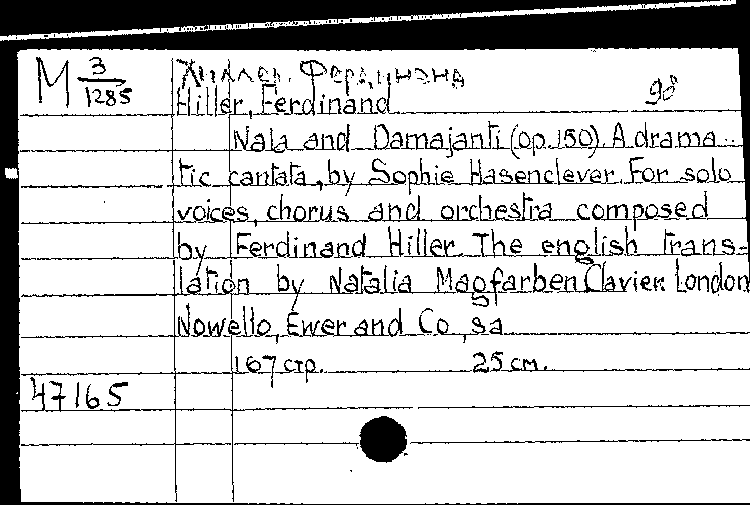 M 3/1285
Хиллер, Фердинанд
Hiller, Ferdinand
98
Nala and Damajanti (op.150). A drama-
tic cantata, by Sophie Hasenclever. For solo
voices, chorus and orchestra composed
by Ferdinand Hiller. The english trans-
lation by Natalia Magfarben Clavier. London
Nowello, Ewer and Co, sa
167 стр. 25 см.
47165